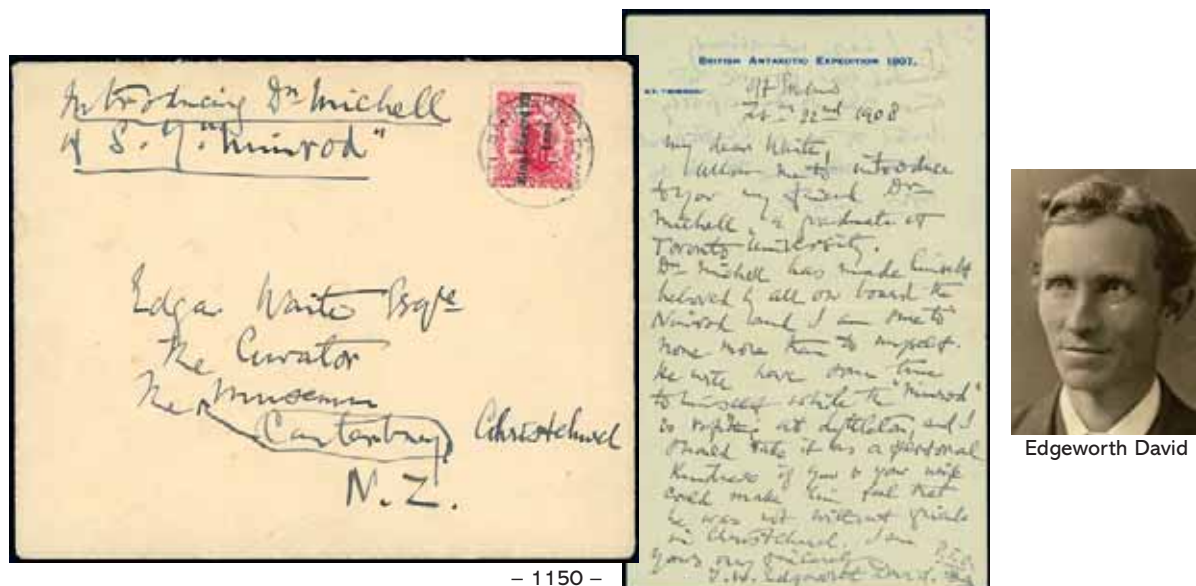 Introducing Dr Michell
of S.Y. "Nimrod"
Edgar Waite Esqre
The Curator
The Museum
Canterbury Christchurch
N. Z.
– 1150 –
BRITISH ANTARCTIC EXPEDITION 1907.
S.Y. "NIMROD"
22nd 1908
My dear Waite,
Allow me to introduce
to you my friend Dr
Michell, a graduate of
Toronto University.
Dr Michell has made himself
beloved by all on board the
Nimrod and I am sure to
none more than to myself.
He will have some time
to himself while the "Nimrod"
is at Lyttelton, and I
should take it as a personal
kindness if you & your wife
could make him feel that
he was not without friends
in Christchurch. I am
yours very sincerely
T.W. Edgeworth David.
Edgeworth David